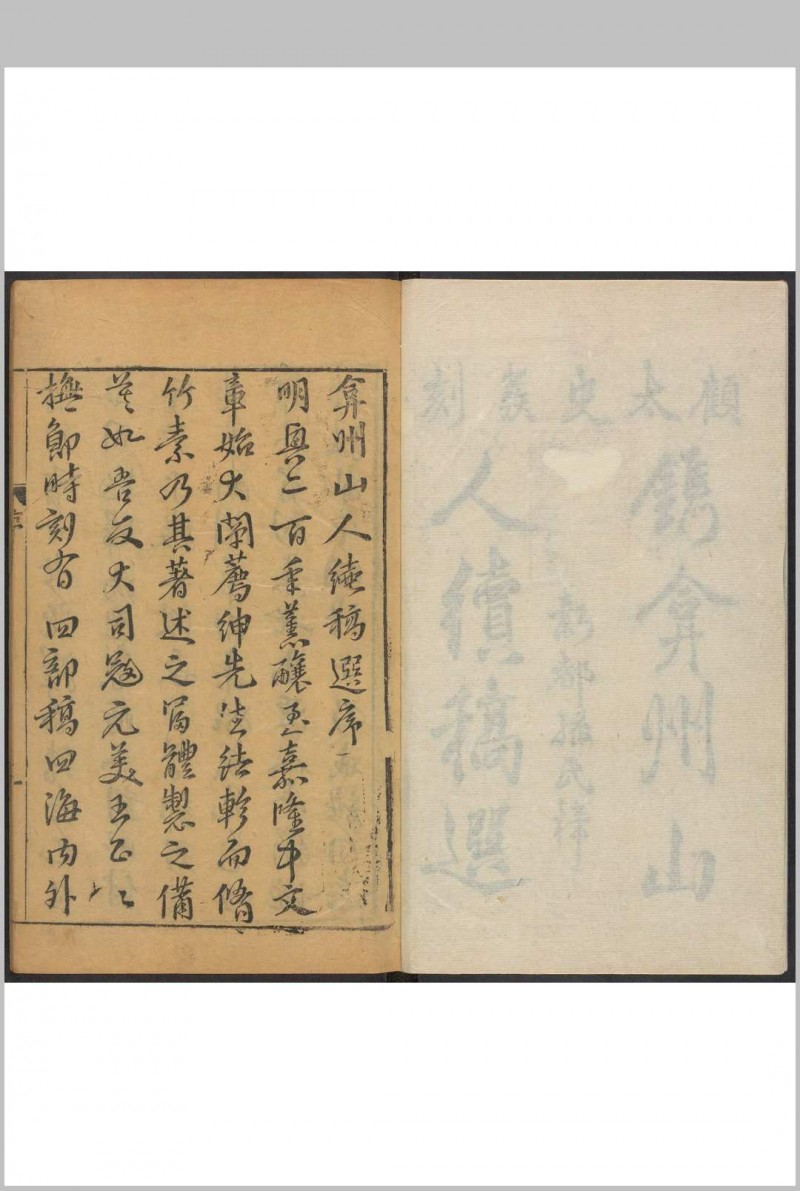 顧太史彚刻
鐫弇州山
人續稿選
新都孫氏梓
弇州山人續稿選序
明興二百年薰釀至嘉隆中文
章始大闡薦紳先生結軫而脩
竹素乃其著述之富體製之備
莫如吾友大司寇元美王公公
撫鄖時刻有四部稿四海內外
序